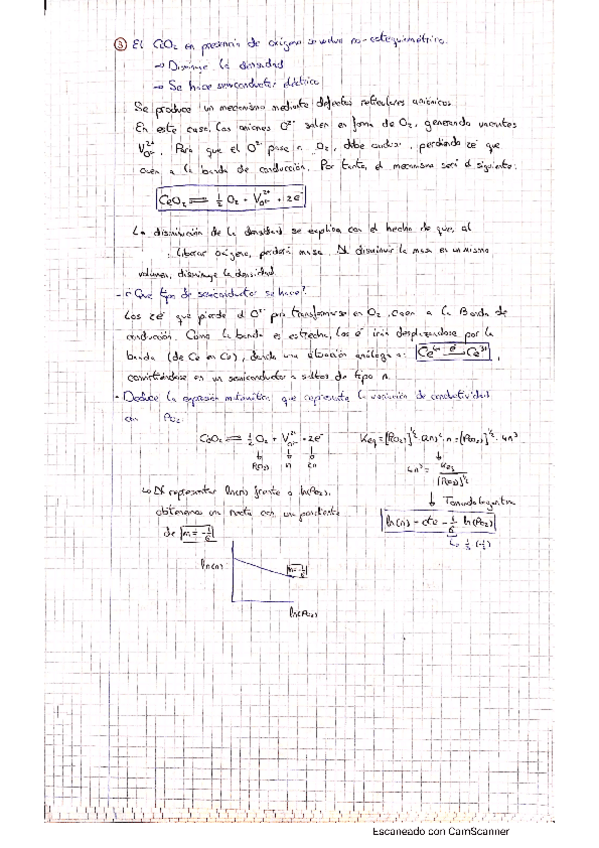 ③ El CeO2 en presencia de oxígeno se vuelve no-estequiométrico.
→ Disminuye la densidad
→ Se hace semiconductor eléctrico
Se produce un mecanismo mediante defectos reticulares aniónicos
En este caso, los aniones O²⁻ salen en forma de O2, generando vacantes
V_O²⁻^2+. Para que el O²⁻ pase a O2, debe , perdiendo 2e⁻ que
caen a la banda de conducción. Por tanto, el mecanismo será el siguiente:
CeO2 ⇌ 1/2 O2 + V_O²⁻^2+ + 2e⁻
La disminución de la densidad se explica con el hecho de que, al
liberar oxígeno, perderá masa. Al disminuir la masa en un mismo
volumen, disminuye la densidad
- ¿Que tipo de semiconductor se hace?
Los 2e⁻ que pierde el O²⁻ para transformarse en O2, caen a la Banda de
conducción. Como la banda es estrecha, los e⁻ irán desplazandose por la
banda (de Ce en Ce), dando una situación análoga a: Ce⁴⁺ e⁻→ Ce³⁺,
convirtiéndose en un semiconductor a saltos de tipo n.
- Deduce la expresión matemática que representa la variación de conductividad
con PO2.
CeO2 ⇌ 1/2 O2 + V_O²⁻^2+ + 2e⁻ Keq = [PO2]^1/2 · (2n)² · n = [PO2]^1/2 · 4n³
↓ ↓ ↓ ↓
P(O2) n 2n 4n³ = Keq/[P(O2)]^1/2
↓ Tomando logaritmos
↳ Al representar ln(n) frente a ln(PO2),
obtenemos una recta con una pendiente ln(n) = cte - 1/6 ln(PO2)
de m = -1/6 ↳ 1/3 · (-1/2)
ln(n) m = -1/6
ln(PO2)
Escaneado con CamScanner